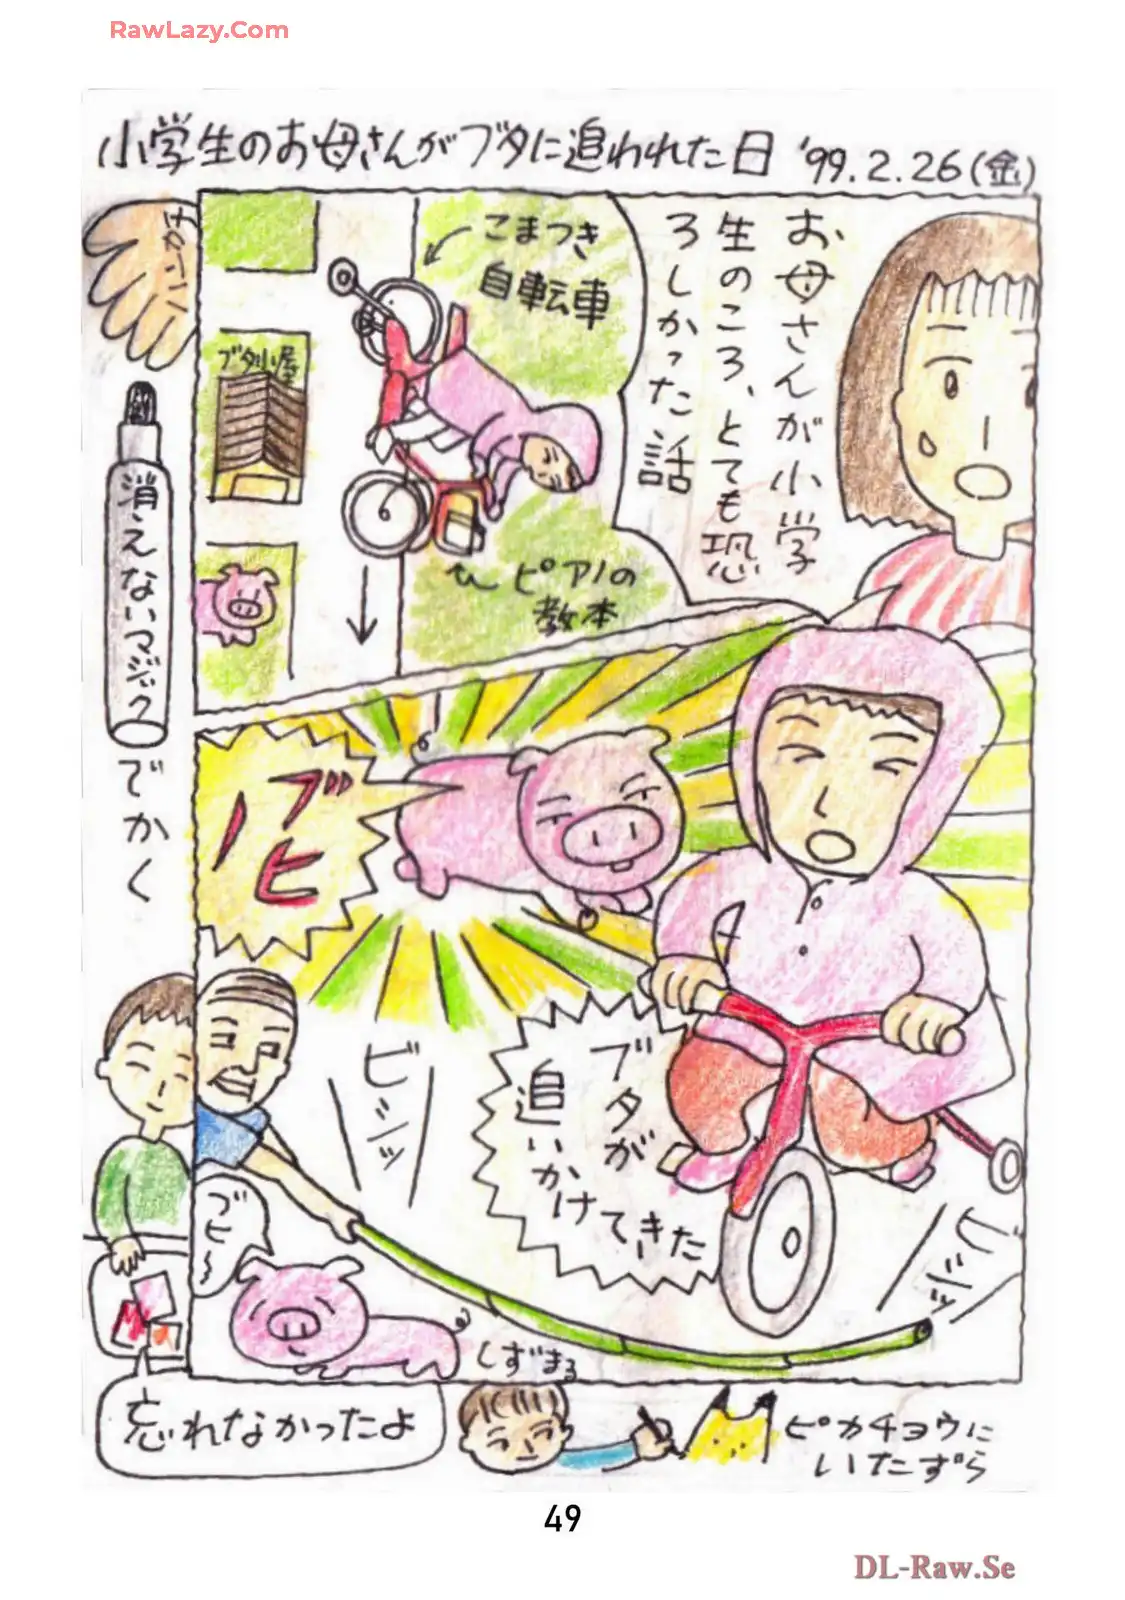 RawLazy.Com
小学生のお母さんがブタに追われた日 '99.2.26(金)
お母さんが小学
生のころ、とても恐
ろしかった話
こまつき
自転車
ブタ小屋
ピアノの
教本
消えないマジック
でかく
ブヒ
ブタが
追いかけてきた
ビシッ
ビシッ
ブヒ〜
しずまる
忘れなかったよ
ピカチョウに
いたずら
49
DL-Raw.Se